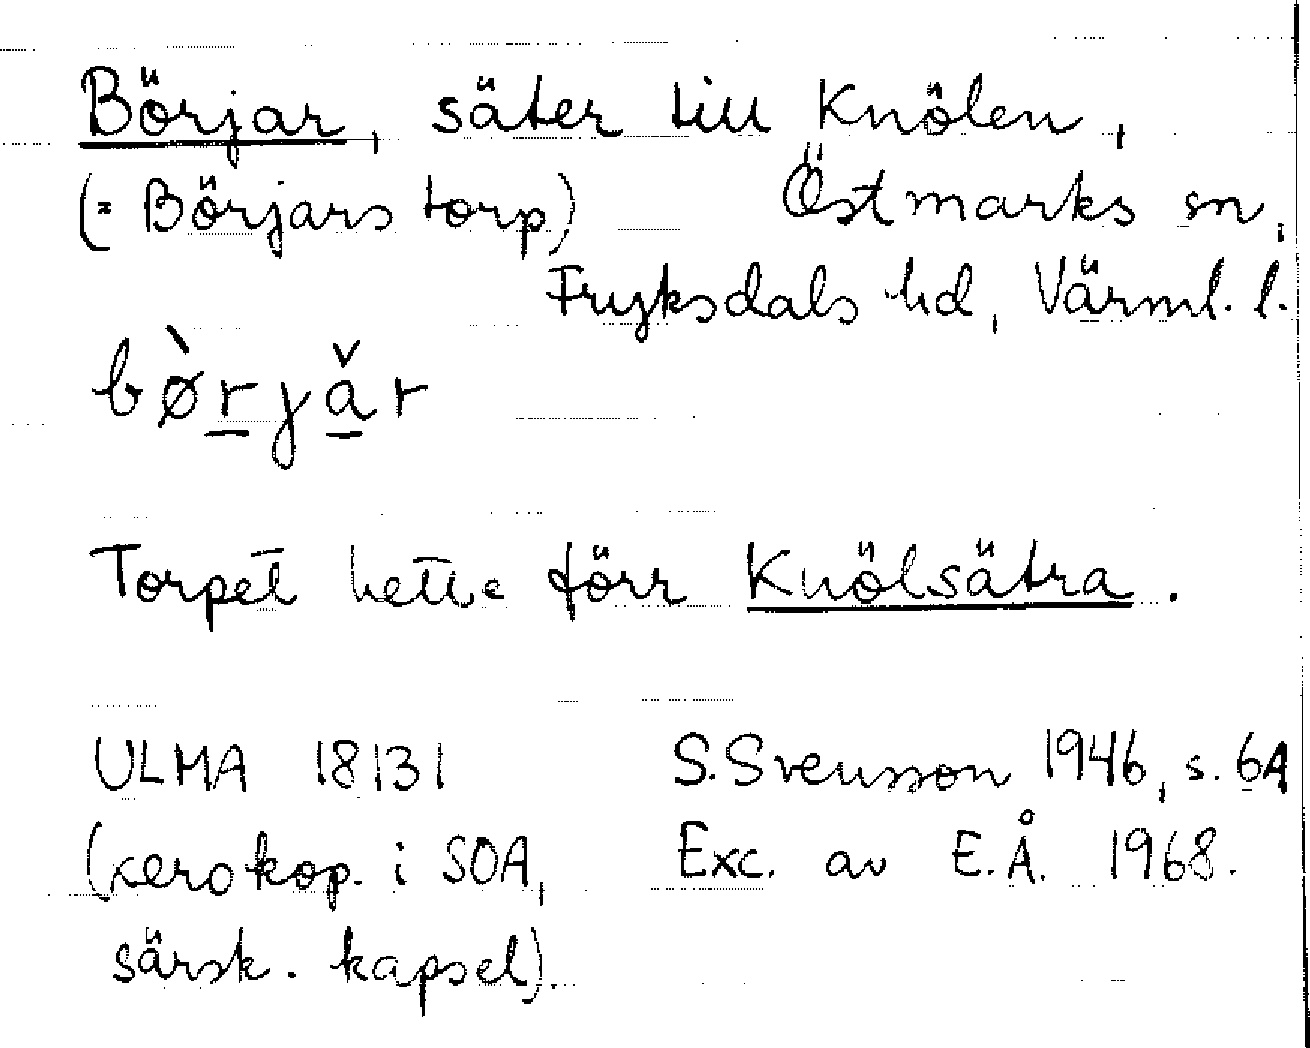 Börjar, säter till Knölen,
(= Börjars torp) Östmarks sn,
Fryksdals hd, Värml. l.
bø̀r̲jǎ̲r
Torpet hette förr Knölsätra.
ULMA 18131 S. Svensson 1946, s. 6A
(xerokop. i SOA, Exc. av E.Å. 1968.
särsk. kapsel).